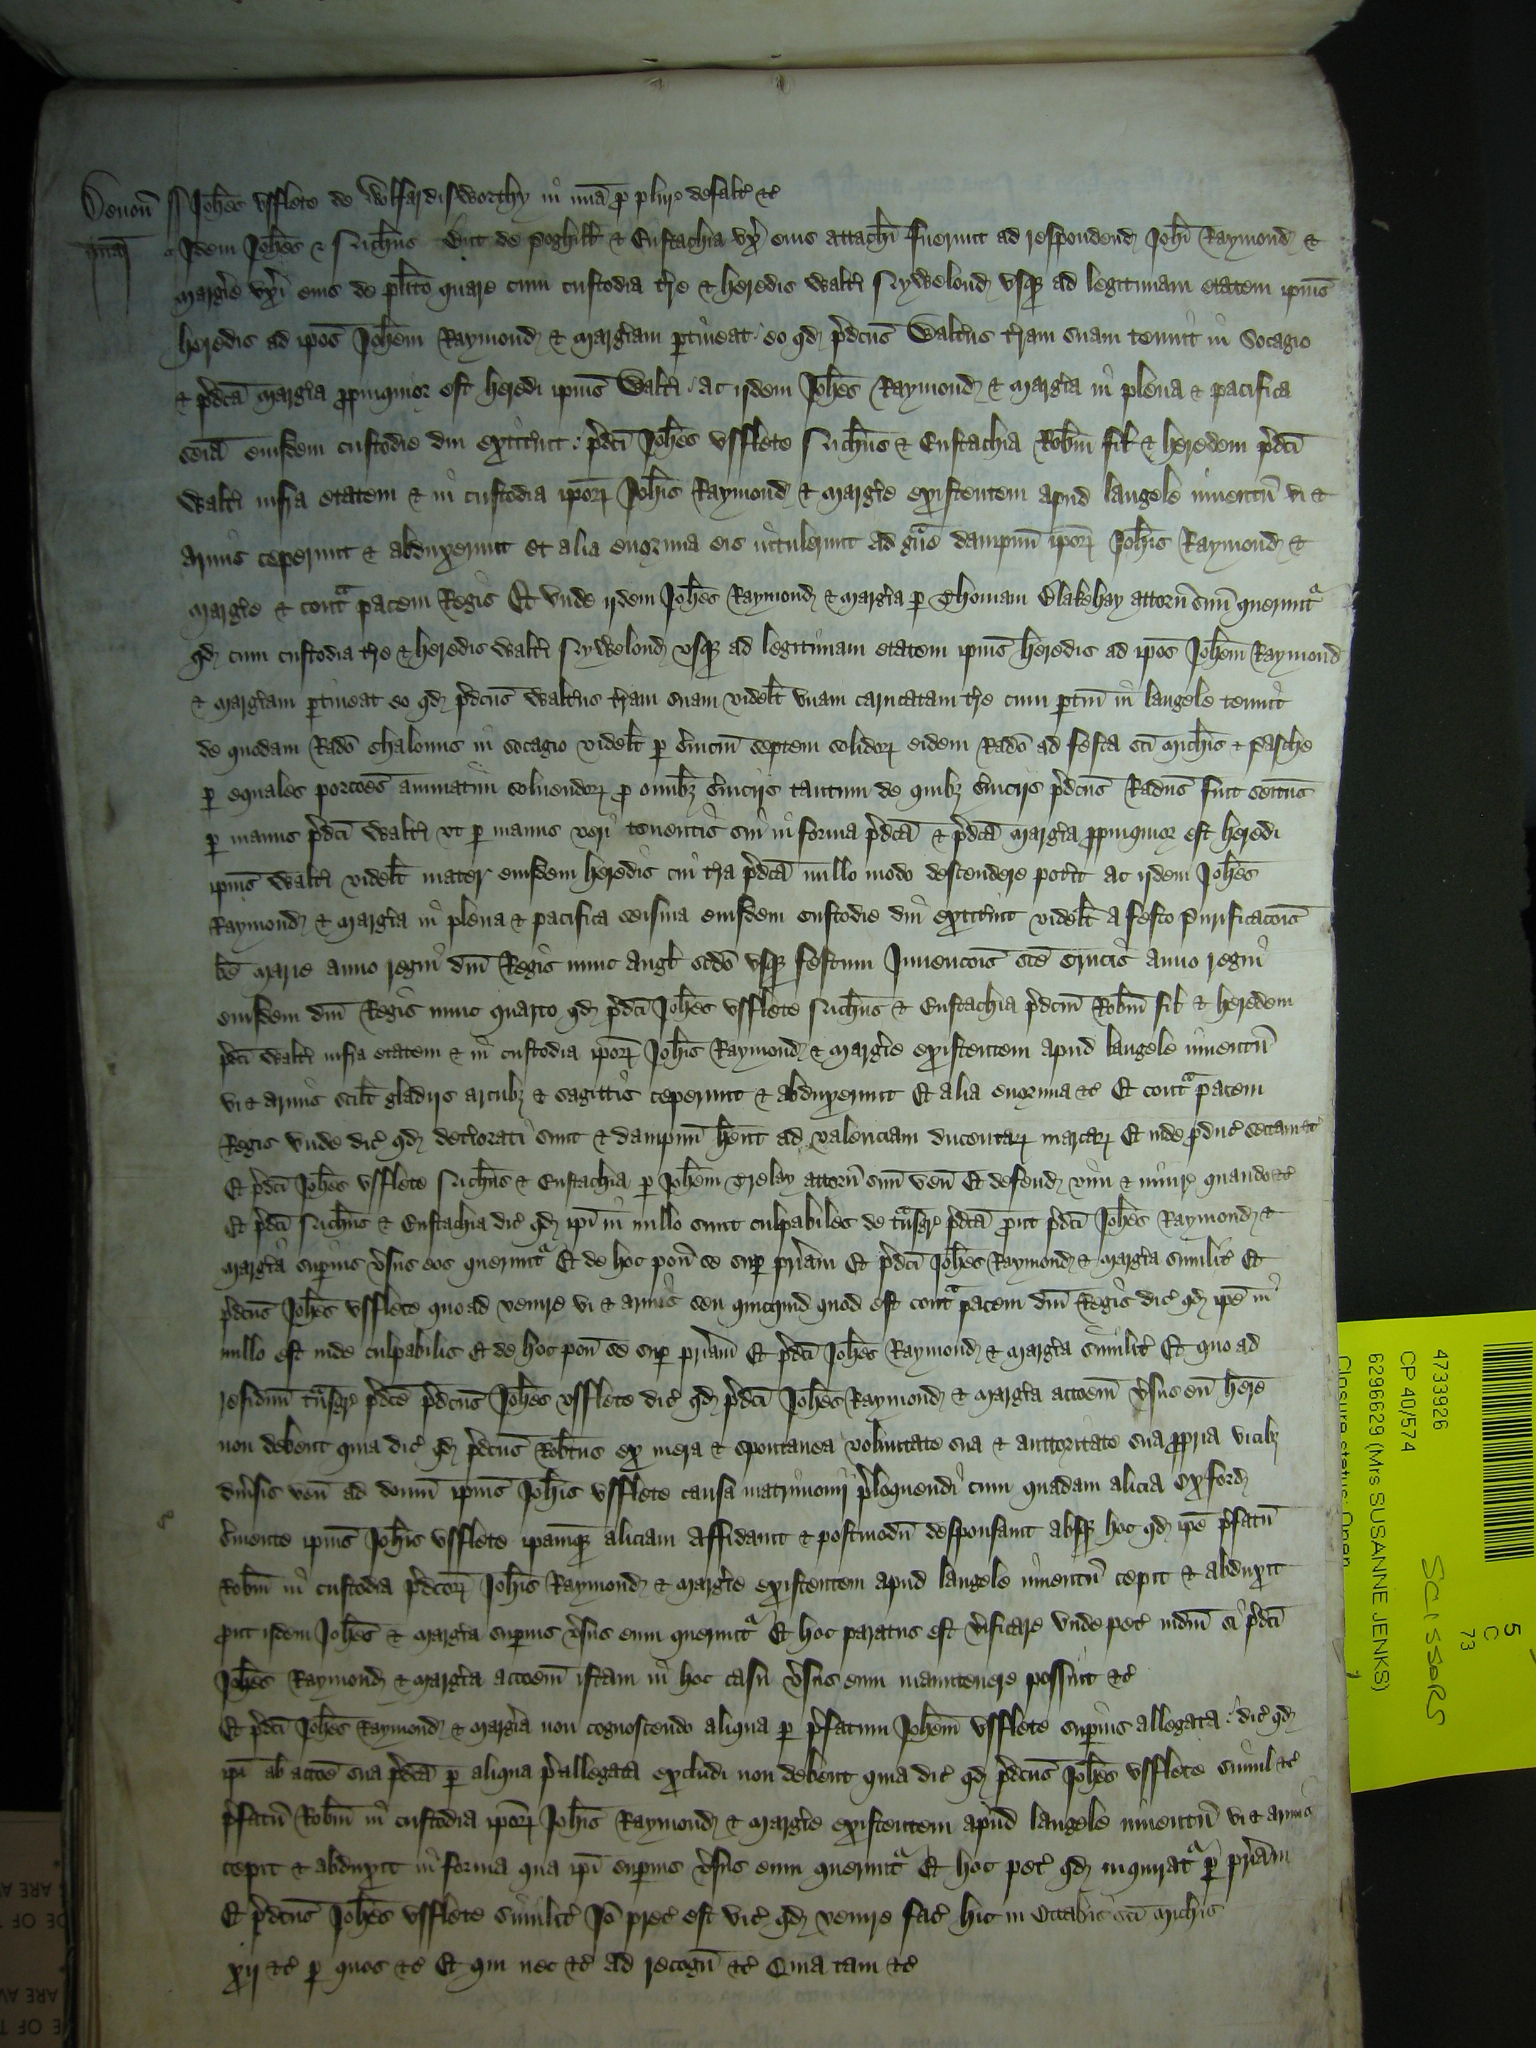 Deuoñ ss Johes Vfflete de Wlfardisworthy in mia p plur defalt &c
Idem Johes & Richus de Poghill & Eustachia vx eius attachi fuerunt ad respondend Johi Raymond &
Margie vxi eius de plito quare cum custodia tre & heredis Walti Nywelond vsq ad legitimam etatem ipius
heredis ad ipos Johem Raymond & Margiam ptineat eo qd pdcus Waltus tram suam tenuit in Socagio
& pdca Margia ppinquior est heredi ipius Walti ac ijdem Johes Raymond & Margia in plena & pacifica
seia eiusdem custodie diu extitunt pdci Johes Vfflete Richus & Eustachia Robm fil & heredem pdci
Walti infra etatem & in custodia ipor Johis Raymond & Margie existentem apud langele inuentu vi &
armis ceperunt & abduxerunt et alia enormia eis intulerunt ad gue dampnu ipor Johis Raymond &
Margie & conta pacem Regis Et vnde ijdem Johes Raymond & Margia p Thomam Blakehay attorn suu querunt
qd cum custodia tre & heredis Walti Nywelond vsq ad legitimam etatem ipius heredis ad ipos Johem Raymond
& Margiam ptineat eo qd pdcus Waltus tram suam videlt vnam carucatam tre cum ptin in langele tenuit
de quodam Rado Chalouns in socagio videlt p suicm septem solidor eidem Rado ad festa sci Michis & Pasche
p equales porcoes annuatim soluendor p omnibz suicijs tantum de quibz suicijs pdcus Radus fuit seitus
p manus pdci Walti vt p manus veri tenentis sui in forma pdca & pdca Margia ppinquior est heredi
ipius Walti videlt mater eiusdem heredis cui tra pdca nullo modo descendere potit ac ijdem Johes
Raymond & Margia in plena & pacifica seisina eiusdem custodie diu extitunt videlt a festo Purificacois
be Marie anno regni dni Regis nunc Angl scdo vsq festum Inuencois sce Crucis anno regni
eiusdem dni Regis nunc quarto qd pdci Johes Vfflete Richus & Eustachia pdcm Robm fil & heredem
pdci Walti infra etatem & in custodia ipor Johis Raymond & Margie existentem apud langele inuentu
vi & armis scilt gladijs arcubz & sagittis ceperunt & abduxerunt Et alia enormia &c Et conta pacem
Regis vnde dic qd detiorati sunt & dampnu hent ad valenciam ducentar marcar Et inde pduc sectam &c
Et pdci Johes Vfflete Richus & Eustachia p Johem Trelay attorn suu ven Et defend vim & iniur quando &c
Et pdci Richus & Eustachia dic qd ipi in nullo sunt culpabiles de tansgr pdca put pdci Johes Raymond &
Margia supius vsus eos querunt Et de hoc pon se sup priam Et pdci Johes Raymond & Margia similit Et
pdcus Johes Vfflete quo ad venire vi & armis seu quicquid quod est conta pacem dni Regis dic qd ipe in
nullo est inde culpabilis Et de hoc pon se sup priam Et pdci Johes Raymond & Margia similit Et quo ad
residuu tansgr pdce pdcus Johes Vfflete dic qd pdci Johes Raymond & Margia accoem vsus eu here
non debent quia dic qd pdcus Robtus ex mera & spontanea voluntate sua & auctoritate sua ppria vicibz
diusis ven ad domu ipius Johis Vfflete causa matrimonij ploquendi cum quadam Alicia Oxford
suiente ipius Johis Vfflete ipamq Aliciam affidauit & postmodu desponsauit absq hoc qd ipe pfatu
Robm in custodia pdcor Johis Raymond & Margie existentem apud langele inuentu cepit & abduxit
put ijdem Johes & Margia supius vsus eum querunt Et hoc paratus est vificare vnde pet iudm si pdci
Johes Raymond & Margia accoem istam in hoc casu vsus eum manutenere possint &c
Et pdci Johes Raymond & Margia non cognoscendo aliqua p pfatum Johem Vfflete supius allegata dic qd
ipi ab accoe sua pdca p aliqua pallegata excludi non debent quia dic qd pdcus Johes Vfflete simul &c
pfatu Robm in custodia ipor Johis Raymond & Margie existentem apud langele inuentu vi & armis
cepit & abduxit in forma qua ipi supius vsus eum querunt Et hoc pet qd inquirat p priam
Et pdcus Johes Vfflete similit Io prec est vic qd venire fac hic in Octabis sci Michis
xij &c p quos &c Et qui nec &c ad recogn &c Quia tam &c
4733926
CP 40/574
6296629 (Mrs SUSANNE JENKS)
Closure status: Open
SCISSORS
5
C
73